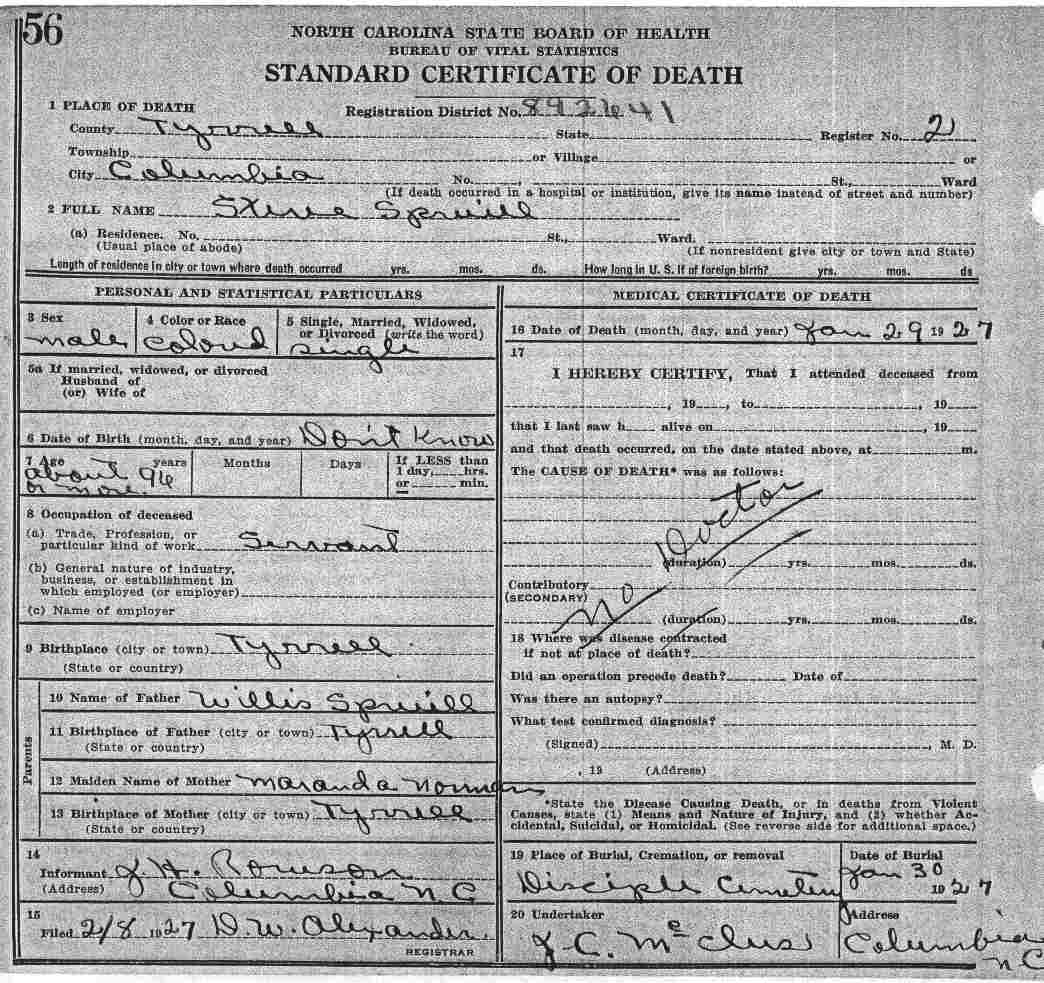 56
NORTH CAROLINA STATE BOARD OF HEALTH
BUREAU OF VITAL STATISTICS
STANDARD CERTIFICATE OF DEATH
1 PLACE OF DEATH
Registration District No. 892641
County Tyrrell State Register No. 2
Township or Village or
City Columbia No. , St., Ward
(If death occurred in a hospital or institution, give its name instead of street and number)
2 FULL NAME Steve Spruill
(a) Residence. No. St., Ward.
(Usual place of abode) (If nonresident give city or town and State)
Length of residence in city or town where death occurred yrs. mos. ds. How long in U. S. if of foreign birth? yrs. mos. ds
PERSONAL AND STATISTICAL PARTICULARS
3 Sex 4 Color or Race 5 Single, Married, Widowed,
or Divorced (write the word)
male colord single
5a If married, widowed, or divorced
Husband of
(or) Wife of
6 Date of Birth (month, day, and year) Don't Know
7 Age years Months Days If LESS than
1 day, hrs.
or min.
about 96
or more.
8 Occupation of deceased
(a) Trade, Profession, or
particular kind of work Servant
(b) General nature of industry,
business, or establishment in
which employed (or employer)
(c) Name of employer
9 Birthplace (city or town) Tyrrell
(State or country)
Parents
10 Name of Father Willis Spruill
11 Birthplace of Father (city or town) Tyrrell
(State or country)
12 Maiden Name of Mother Maranda
13 Birthplace of Mother (city or town) Tyrrell
(State or country)
14
Informant J. H.
(Address) Columbia N C
15
Filed 2/8 1927 D. W. Alexander
REGISTRAR
MEDICAL CERTIFICATE OF DEATH
16 Date of Death (month, day, and year) Jan 29 1927
17
I HEREBY CERTIFY, That I attended deceased from
, 19 , to , 19
that I last saw h alive on , 19
and that death occurred, on the date stated above, at m.
The CAUSE OF DEATH* was as follows:
No Doctor
(duration) yrs. mos. ds.
Contributory
(SECONDARY)
(duration) yrs. mos. ds.
18 Where was disease contracted
if not at place of death?
Did an operation precede death? Date of
Was there an autopsy?
What test confirmed diagnosis?
(Signed) , M. D.
, 19 (Address)
*State the Disease Causing Death, or in deaths from Violent
Causes, state (1) Means and Nature of Injury, and (2) whether Ac-
cidental, Suicidal, or Homicidal. (See reverse side for additional space.)
19 Place of Burial, Cremation, or removal Date of Burial
Disciple Cemetery Jan 30 1927
20 Undertaker Address
J. C. Columbia
N C